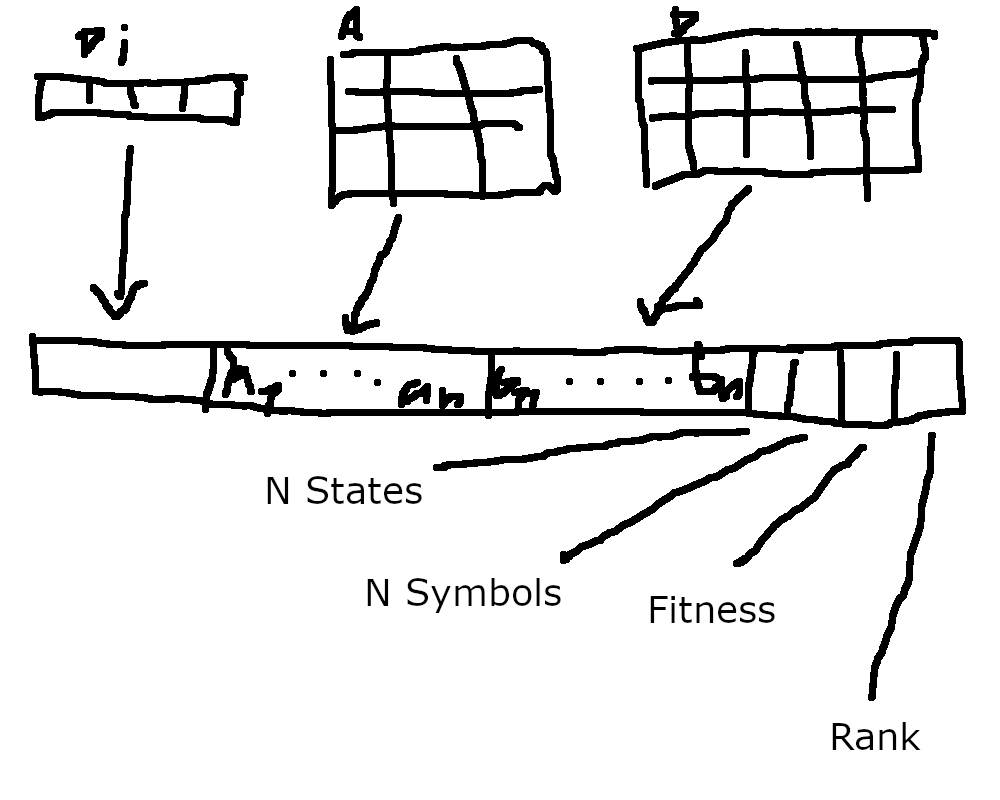 Pi
A
B
A1 .... an b1 .... bn
N States
N Symbols
Fitness
Rank